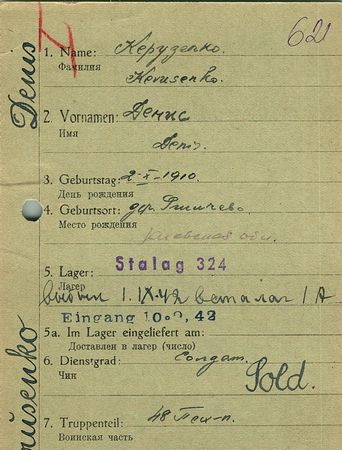 621
1. Name: Керуденко
Фамилия
Kerusenko
2. Vornamen: Денис
Имя
Denis
3. Geburtstag: 2-X-1910.
День рождения
4. Geburtsort: дер.
Место рождения Киевская обл.
5. Lager: Stalag 324
Лагер
Выбыл 1.IX.42 в шталаг I A
Eingang 10.9.42
5a. Im Lager eingeliefert am:
Доставлен в лагер (число)
6. Dienstgrad: Солдат.
Чин
Sold.
7. Truppenteil: 48 Пех-п.
Воинская часть
Denis